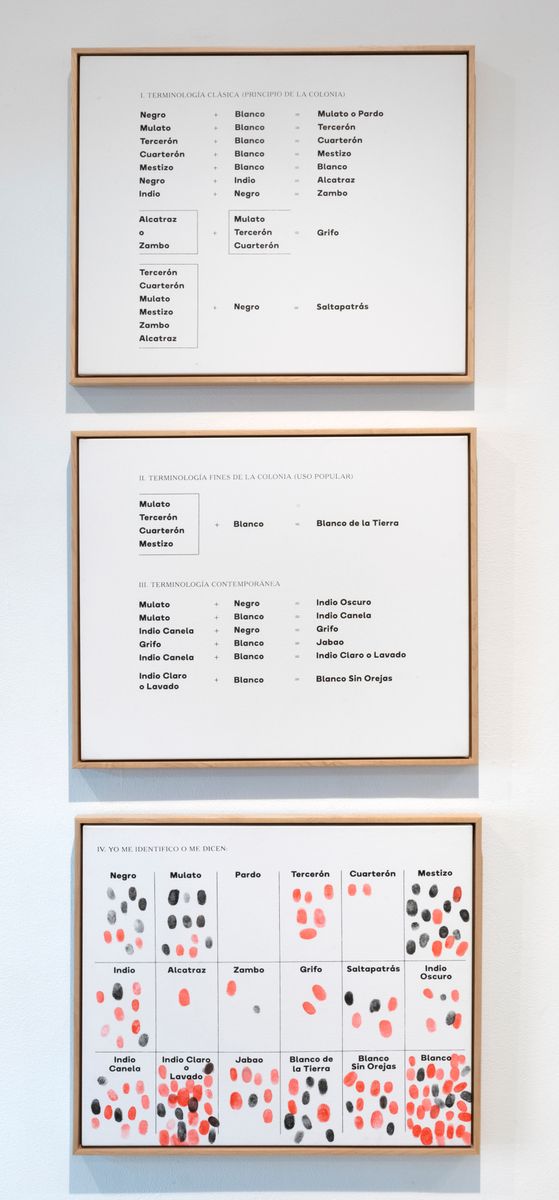 I. TERMINOLOGÍA CLÁSICA (PRINCIPIO DE LA COLONIA)
Negro + Blanco = Mulato o Pardo
Mulato + Blanco = Tercerón
Tercerón + Blanco = Cuarterón
Cuarterón + Blanco = Mestizo
Mestizo + Blanco = Blanco
Negro + Indio = Alcatraz
Indio + Negro = Zambo
Alcatraz Mulato
o + Tercerón = Grifo
Zambo Cuarterón
Tercerón
Cuarterón
Mulato
Mestizo + Negro = Saltapatrás
Zambo
Alcatraz
II. TERMINOLOGÍA FINES DE LA COLONIA (USO POPULAR)
Mulato
Tercerón
Cuarterón + Blanco = Blanco de la Tierra
Mestizo
III. TERMINOLOGÍA CONTEMPORÁNEA
Mulato + Negro = Indio Oscuro
Mulato + Blanco = Indio Canela
Indio Canela + Negro = Grifo
Grifo + Blanco = Jabao
Indio Canela + Blanco = Indio Claro o Lavado
Indio Claro
o Lavado + Blanco = Blanco Sin Orejas
IV. YO ME IDENTIFICO O ME DICEN:
Negro Mulato Pardo Tercerón Cuarterón Mestizo
Indio Alcatraz Zambo Grifo Saltapatrás Indio
Oscuro
Indio Indio Claro Jabao Blanco de Blanco Blanco
Canela o la Tierra Sin Orejas
Lavado